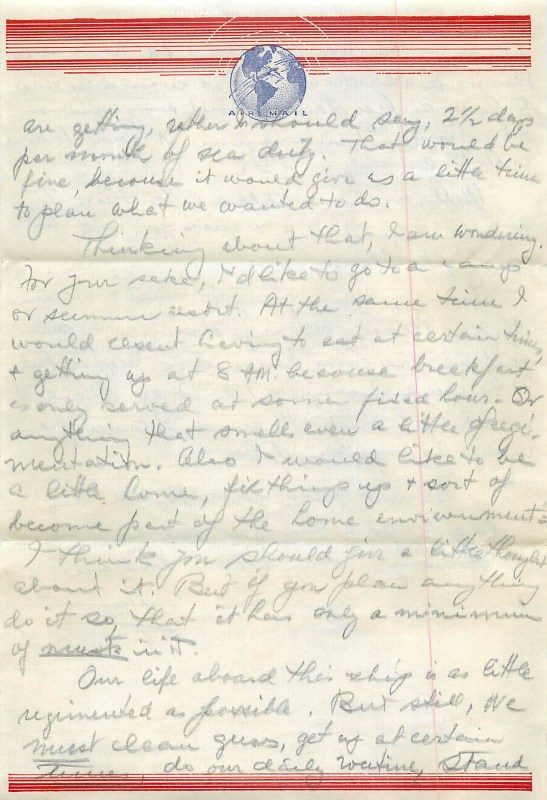 AIR MAIL
are getting, rather I should say, 2½ days
per month of sea duty. That would be
fine, because it would give us a little time
to plan what we wanted to do.
Thinking about that, I am wondering.
For your sake, I'd like to go to a camp
or summer resort. At the same time I
would resent having to eat at certain times,
+ getting up at 8 AM. because breakfast
is only served at some fixed hour. Or
anything that smells even a little of regi-
mentation. Also I would like to be
a little home, fix things up + sort of
become part of the home environment.
I think you should give a little thought
about it. But if you plan anything
do it so, that it has only a minimum
of musts in it.
Our life aboard this ship is as little
regimented as possible. But still, we
must clean guns, get up at certain
times, do our daily routine, stand